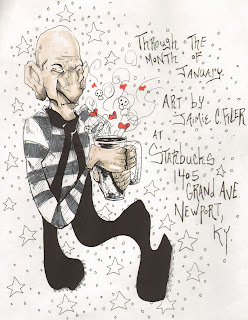 Through The
Month of
January
Art by
Jaimie C. Filer
At
Starbucks
1405
Grand Ave
Newport,
KY